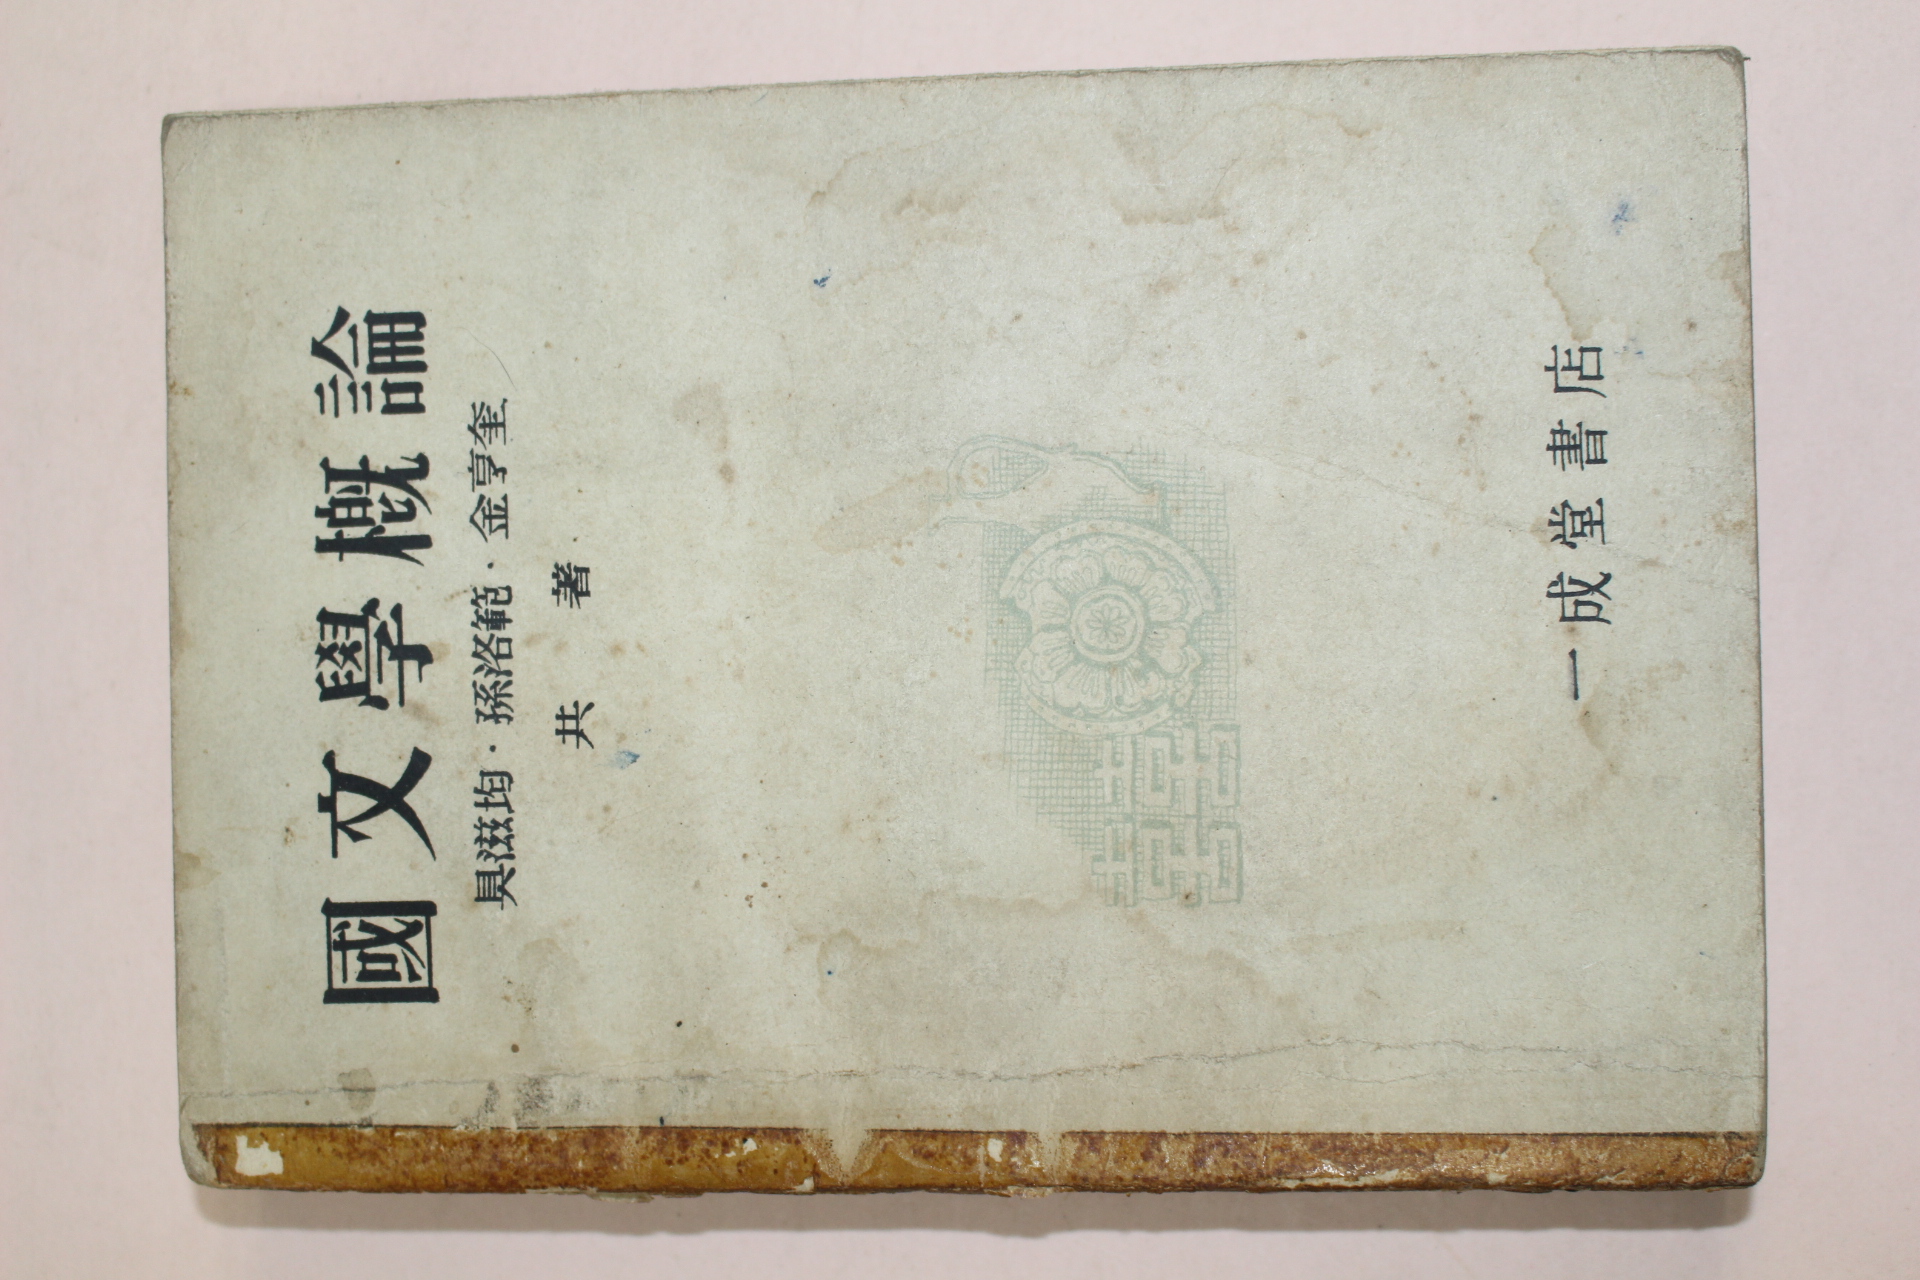 國文學概論
具滋均·孫洛範·金亨奎
共著
一成堂書店